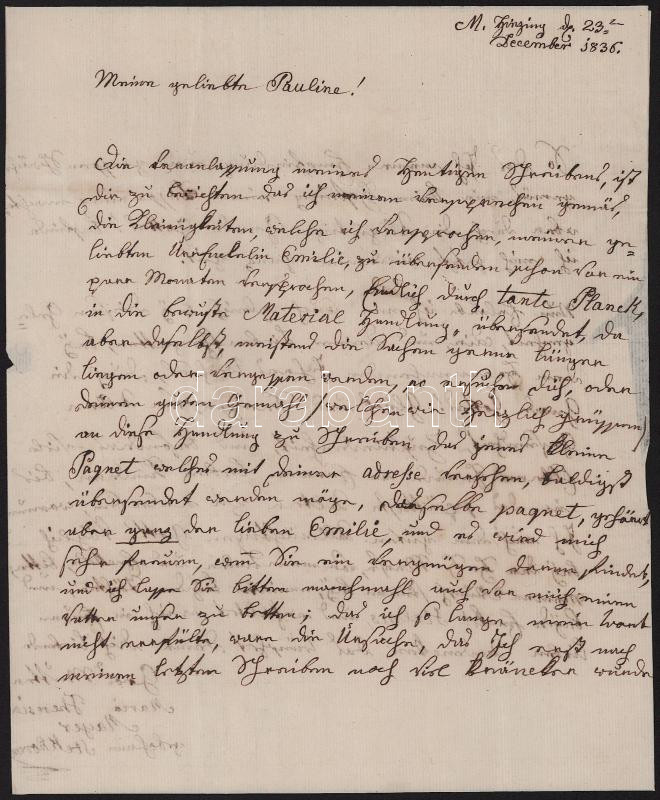 M. Hinzing dn 23tn
December 1836.
Meine geliebte Pauline!
Die Veranlassung meines Heutigen Schreibens, ist
die zu berichten das ich meinen Versprechen gemäs,
die Kleinigkeiten, welche ich versprochen, meinen ge=
liebten Urenkelin Emilie, zu übersenden schon vor ein
paar Monaten versprochen, Endlich durch tante Planck,
in die bewuste Material Handlung, übersendet, da
aber daselbst, meistens die Sachen gerne länger
liegen oder vergessen werden, so ersuche dich, oder
deinen guten Gemahl (welchen wir Herzlich grüssen)
an diese Handlung zu Schreiben das jenes kleine
Paqnet welches mit deiner adresse versehen, baldigst
übersendet werden möge, daselbe paqnet, gehöret
aber ganz der lieben Emilie, und es wird mich
sehr freuen, wenn Sie ein Vergnügen daran findet,
und ich lasse Sie bitten manchmahl auch vor mich einen
Vatter unser zu betten; das ich so lange mein wort
nicht erfülte, ware die Ursache, das Ich erst nach
meinen letzten Schreiben noch viel kräncker wurde
darabanth
Maria Theresia
Mayer